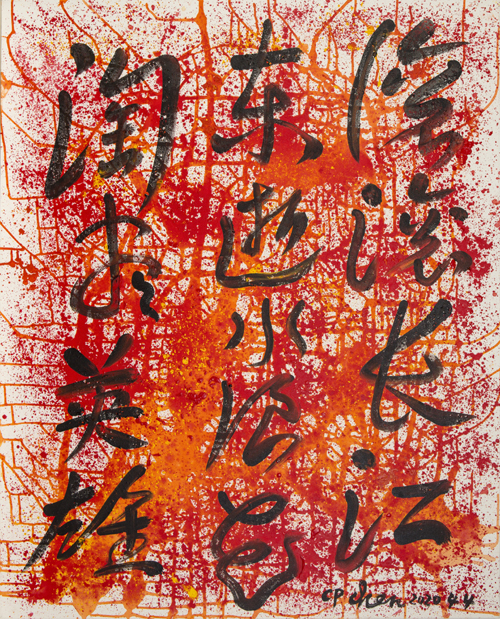 滚滚长江
东逝水浪花
淘尽英雄
CP chen